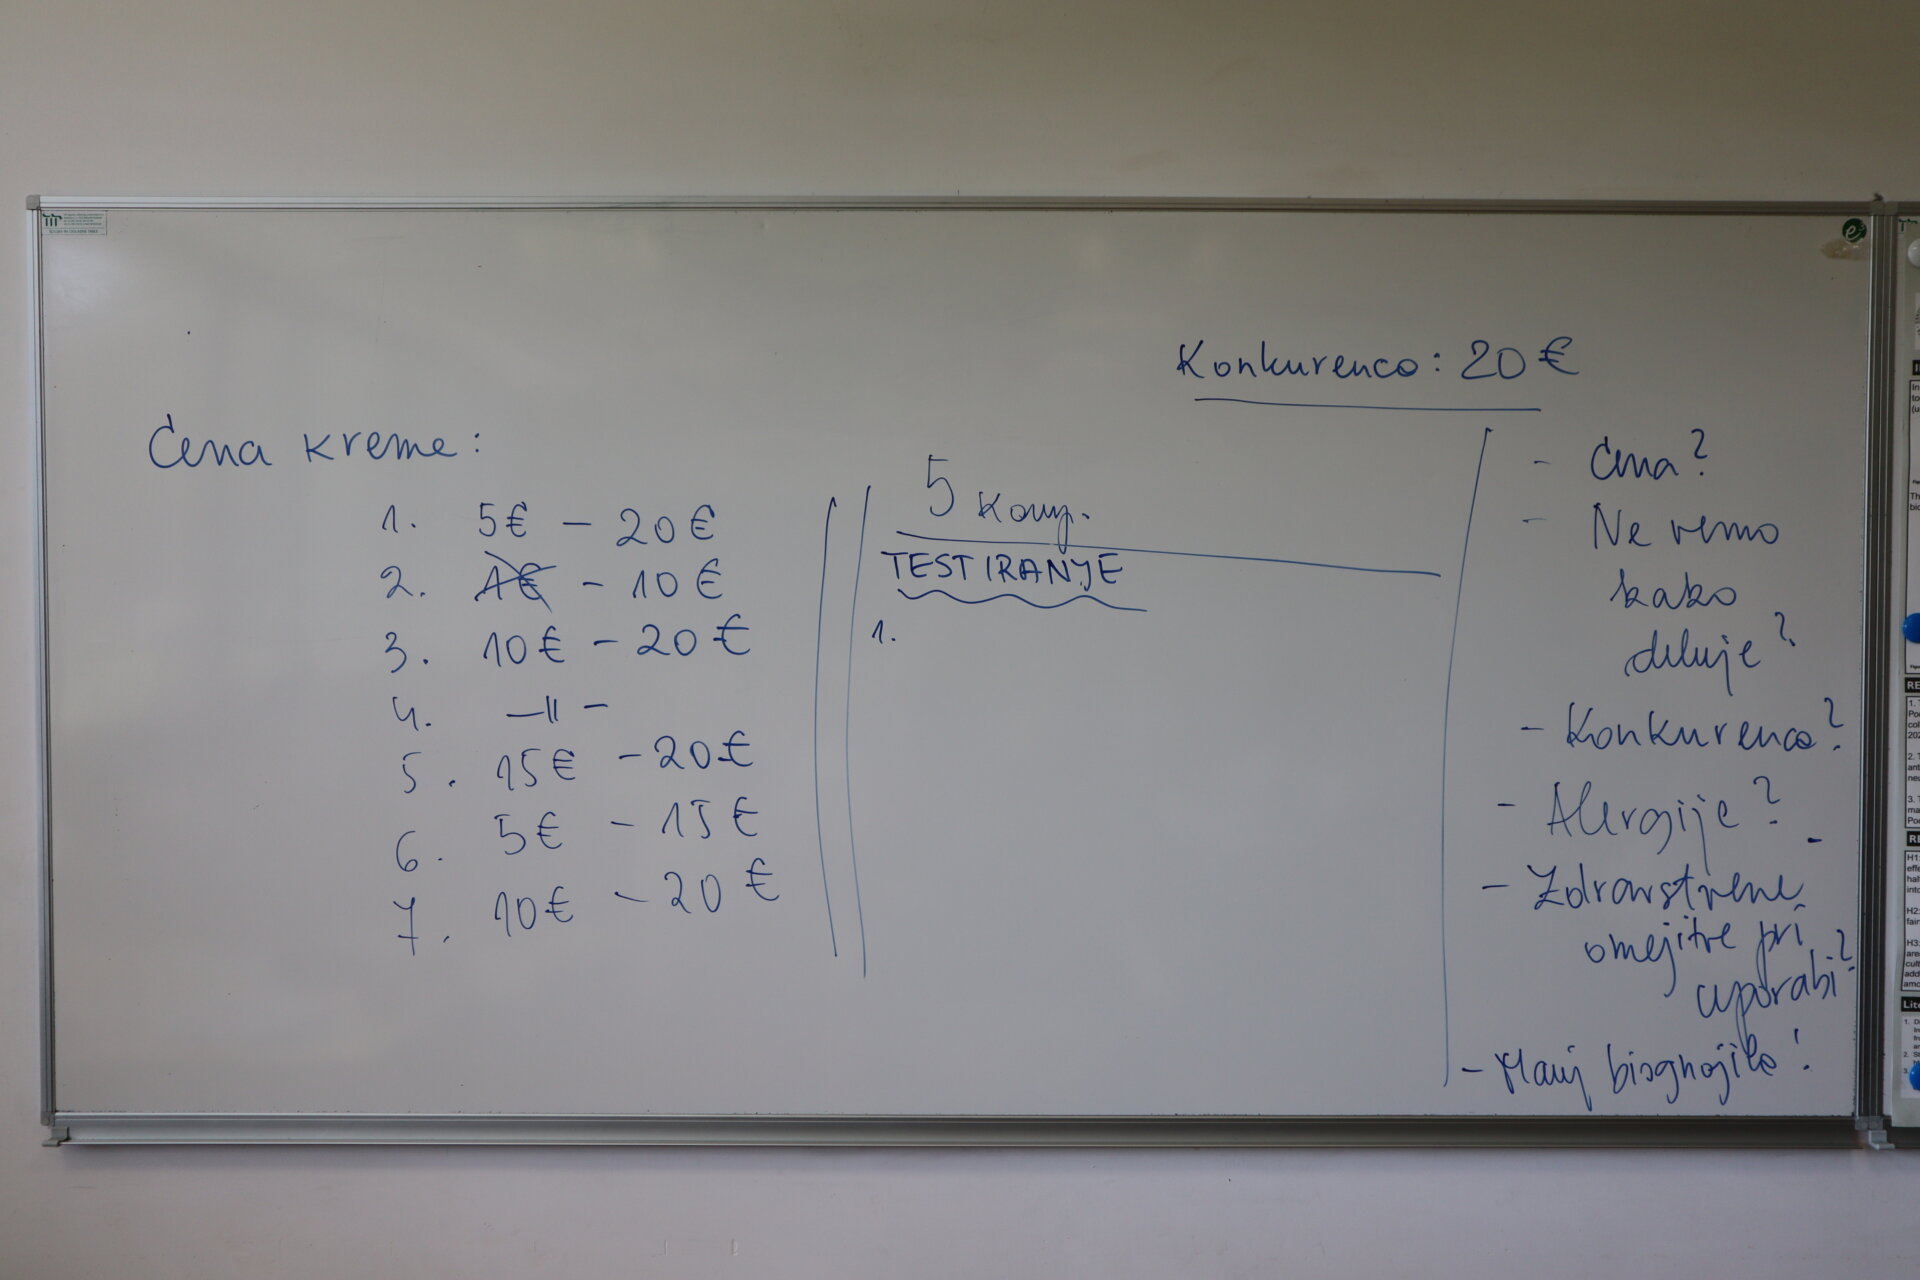 Konkurenca: 20 €
Cena kreme:
1. 5€ - 20€
2. 1€ - 10€
3. 10€ - 20€
4. —||—
5. 15€ - 20€
6. 5€ - 15€
7. 10€ - 20€
5
TESTIRANJE
1.
- Cena?
- Ne vemo
kako
deluje?
- Konkurenca?
- Alergije?
- Zdravstvene
omejitve pri
uporabi?
- Manj biognojila!